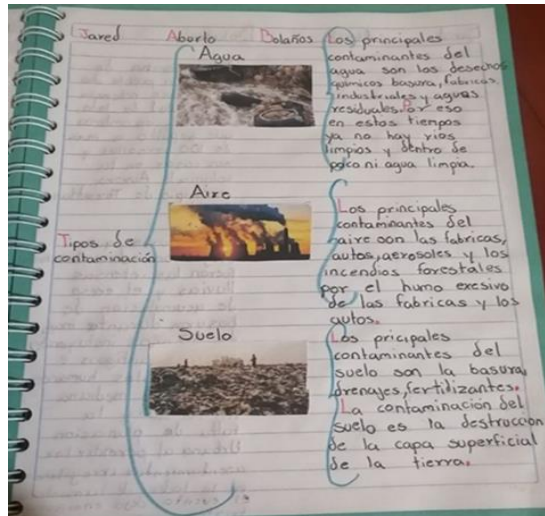 Jared Aburto Bolaños
Tipos de
contaminación
Agua
Los principales
contaminantes del
agua son los desechos
químicos basura, fabricas
industriales y aguas
residuales. Por eso
en estos tiempos
ya no hay rios
limpios y dentro de
poco ni agua limpia.
Aire
Los principales
contaminantes del
aire son las fabricas,
autos, aerosoles y los
incendios forestales
por el humo exesivo
de las fabricas y los
autos.
Suelo
Los pricipales
contaminantes del
suelo son la basura,
drenajes, fertilizantes.
La contaminación del
suelo es la destrucción
de la capa superficial
de la tierra.